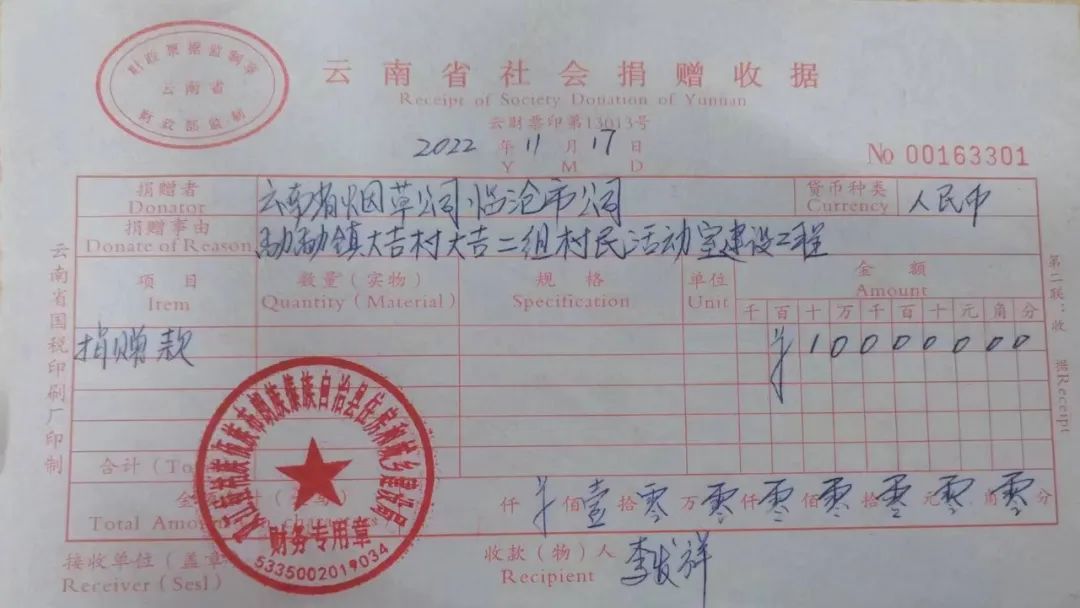 财政票据监制章
云南省
财政部监制
云南省社会捐赠收据
Receipt of Society Donation of Yunnan
云财票印第13013号
2022 年 11 月 17 日
Y M D
No 00163301
捐赠者 云南省烟草公司临沧市公司 货币种类 人民币
Donator Currency
捐赠事由 勐勐镇大吉村大吉二组村民活动室建设工程
Donate of Reason
项目 数量(实物) 规格 单位 金额
Item Quantity (Material) Specification Unit Amount
千 百 十 万 千 百 十 元 角 分
捐赠款 ¥ 1 0 0 0 0 0 0 0
合计
金
仟 ¥ 佰 壹 拾 零 万 零 仟 零 佰 零 拾 零 元 零 角 零 分
Total Amount characters
接收单位(盖章 收款(物)人 李发祥
Receiver (Sesl) Recipient
双江拉祜族佤族布朗族傣族自治县住房和城乡建设局
财务专用章
5335002019034
云南省国税印刷厂印制
第二联:收据 Receipt